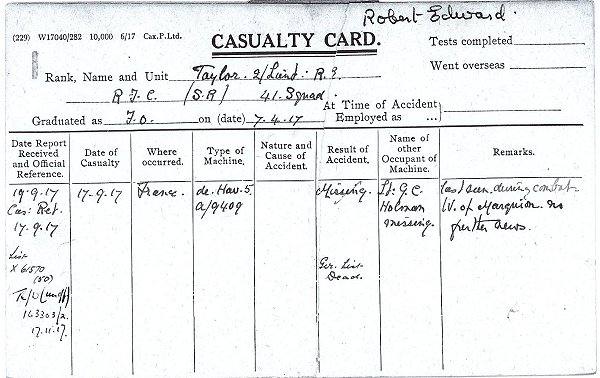 Robert Edward.
(229) W17040/282 10,000 6/17 Cax.P.Ltd.
CASUALTY CARD.
Tests completed
Went overseas
Rank, Name and Unit Taylor. 2/Lieut. R. E.
R F C. (S.R) 41. Squad.
At Time of Accident
Employed as ...
Graduated as F.O. on (date) 7.4.17
Date Report Received and Official Reference.
Date of Casualty
Where occurred.
Type of Machine.
Nature and Cause of Accident.
Result of Accident.
Name of other Occupant of Machine.
Remarks.
19.9.17
Cas: Ret.
17.9.17
List
X 61570
(50)
163303/2.
17.11.17.
17-9-17
France.
de. Hav. 5
A/9409
Missing.
Ger. List
Dead.
Lt. G. C.
Holman
missing.
last seen during combat
W. of Marquion. no
further news.